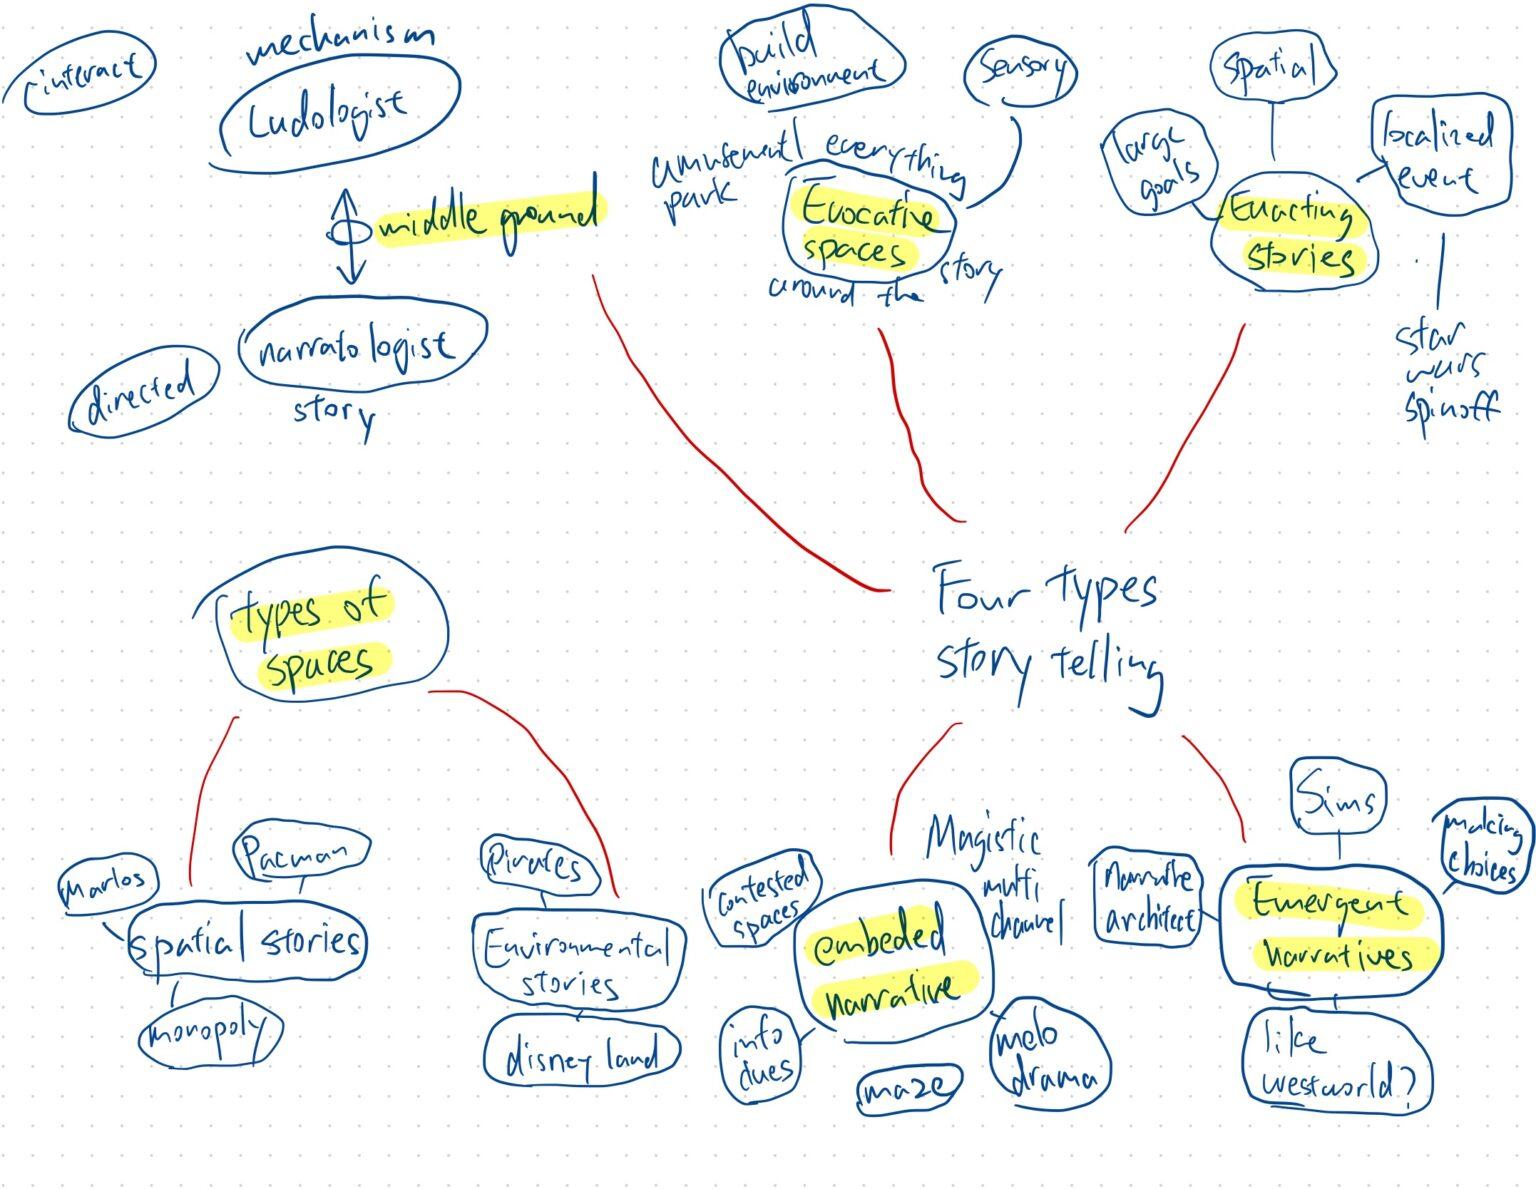 interact
mechanism
Ludologist
middle ground
narratologist
directed
story
build
environment
sensory
amusement
park
everything
Evocative
spaces
around the story
spatial
large
goals
localized
event
Enacting
stories
star
wars
spinoff
types of
spaces
Four types
story telling
Marios
Pacman
spatial stories
monopoly
Pirates
Environmental
stories
disney land
contested
spaces
Magistic
multi
channel
embeded
narrative
info
maze
melo
drama
Sims
making
choices
Narrative
architect
Emergent
narratives
like
westworld?